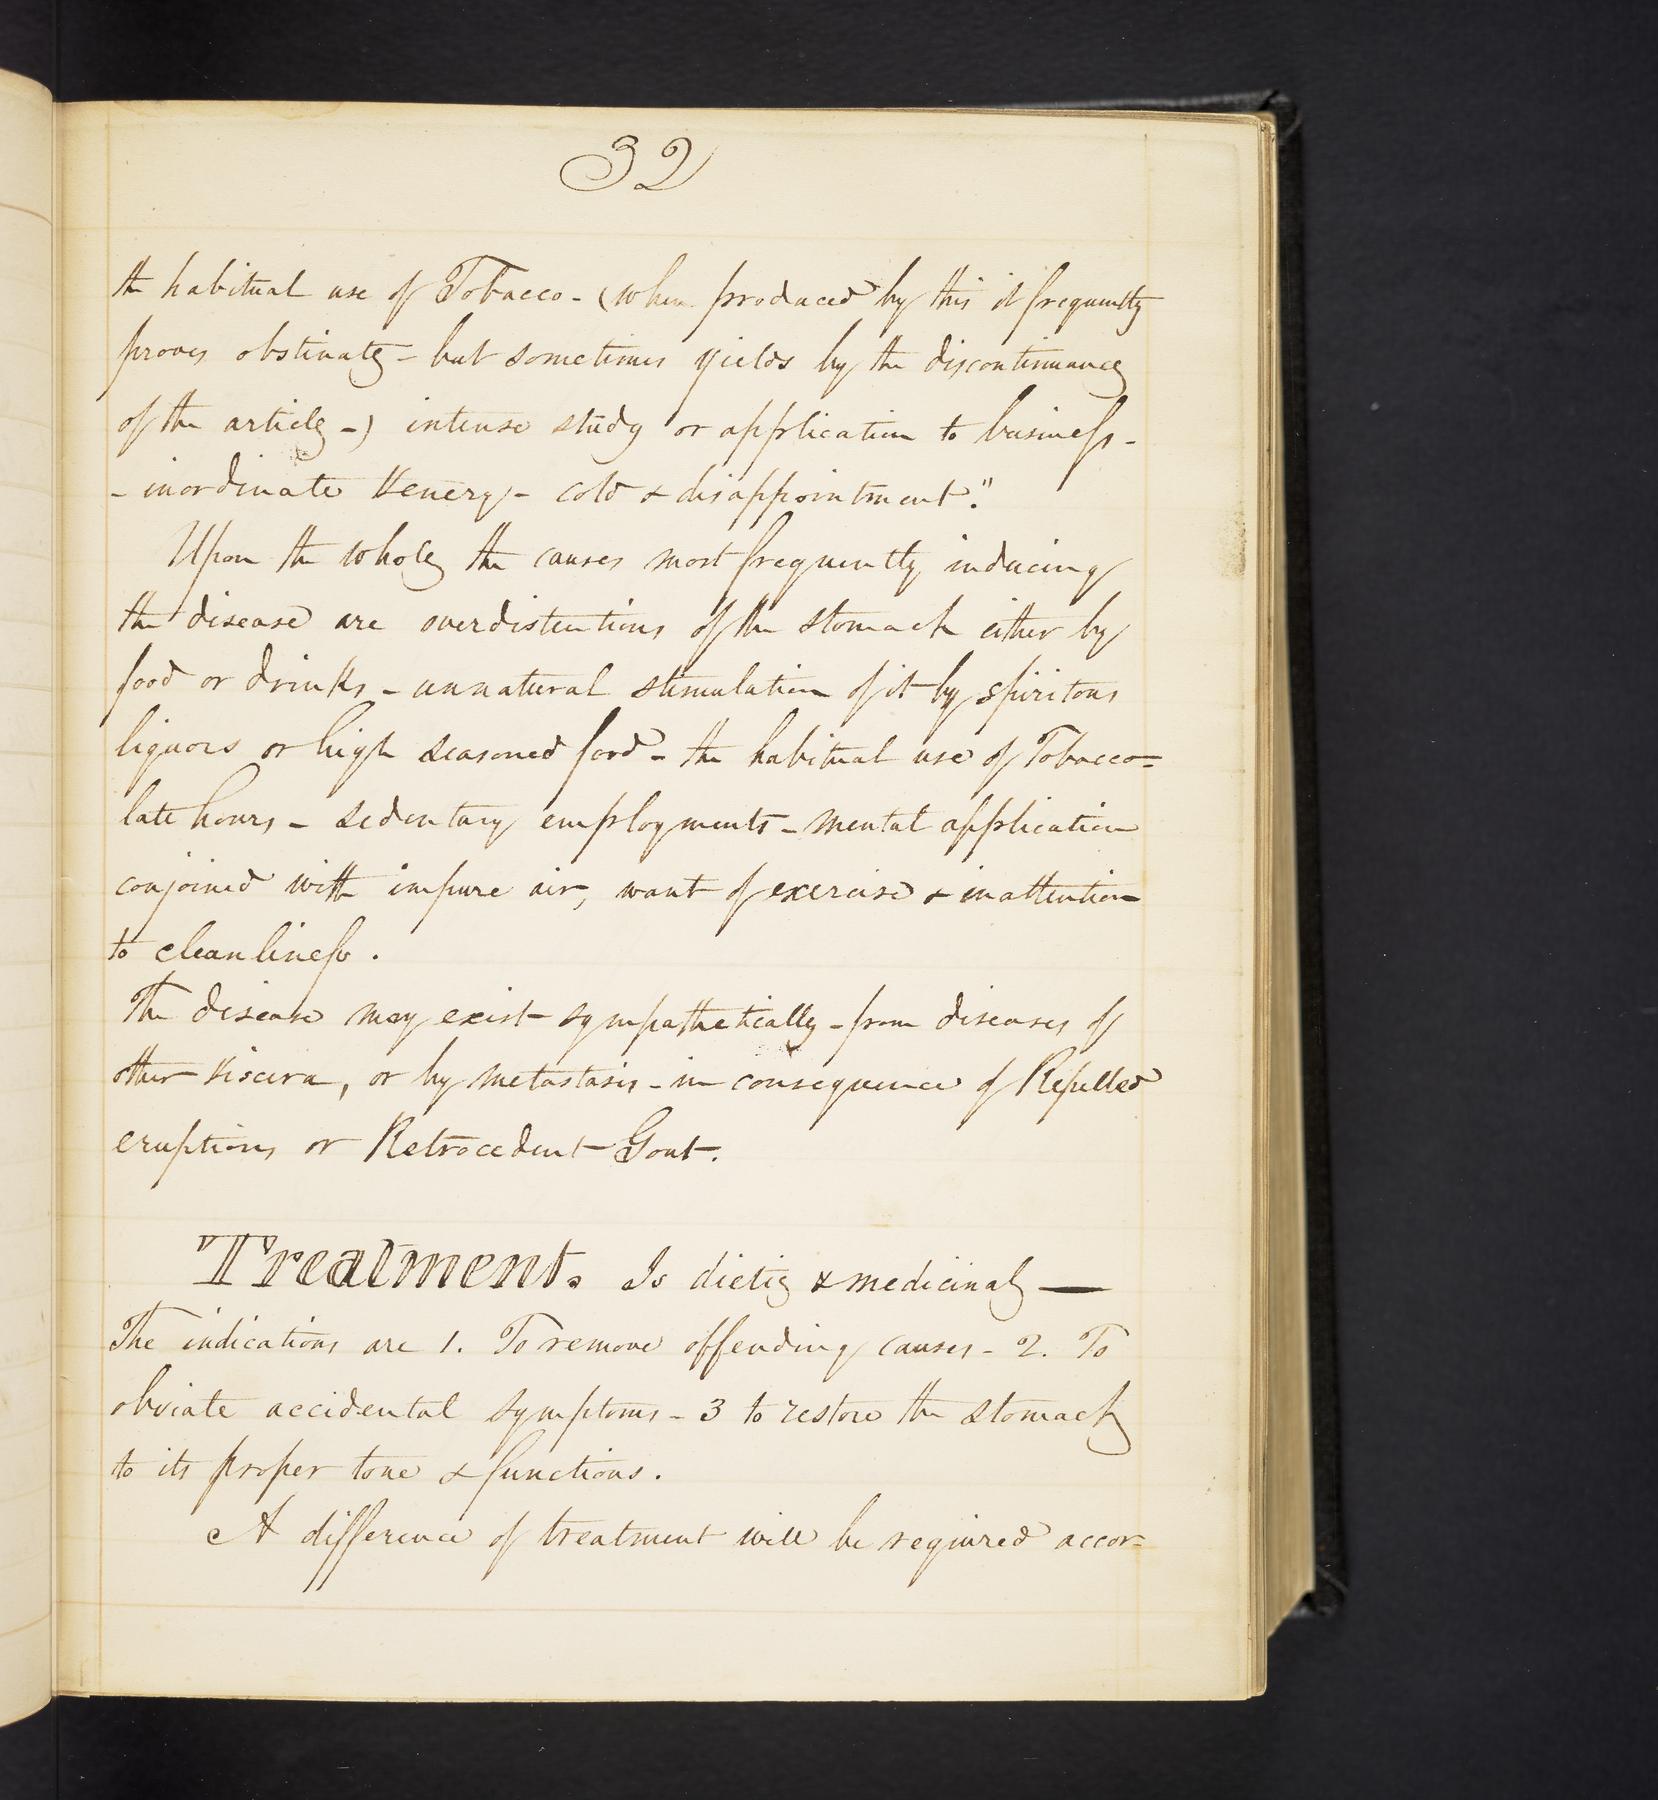 32
the habitual use of Tobacco - (when produced by this it frequently
proves obstinate - but sometimes yields by the discontinuance
of the article -) intense study or application to business -
- inordinate Venery - cold & disappointment."
Upon the whole the causes most frequently inducing
the disease are overdistentions of the stomach either by
food or drinks - unnatural stimulation of it by spiritous
liquors or high seasoned food - the habitual use of Tobacco =
late hours - sedentary employments - mental application
conjoined with impure air, want of exercise & inattention
to cleanliness.
The disease may exist sympathetically - from diseases of
other viscera, or by metastasis - in consequence of Repelled
eruptions or Retrocedent Gout.
Treatment. Is dietic & medicinal —
The indications are 1. To remove offending causes - 2. To
obviate accidental symptoms - 3 to restore the stomach
to its proper tone & functions.
A difference of treatment will be required accor=